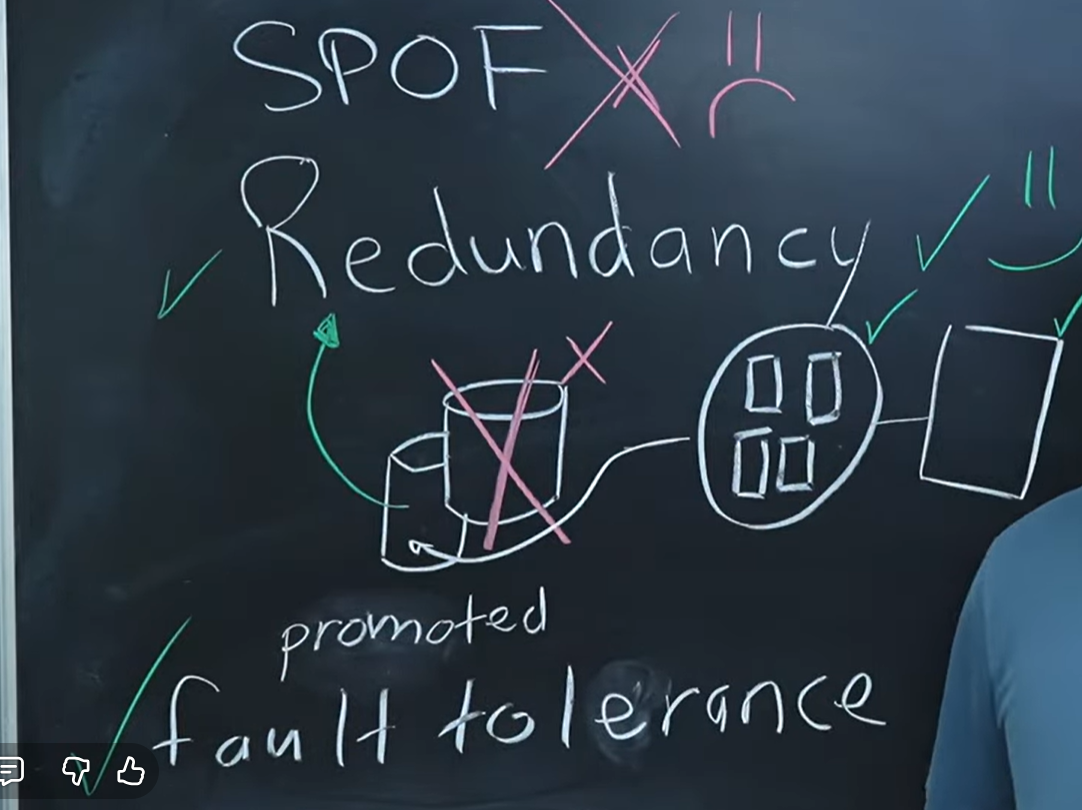 SPOF
Redundancy
promoted
fault tolerance